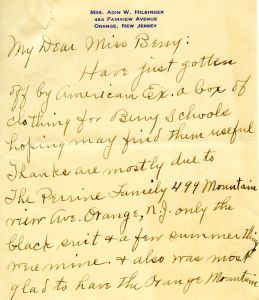 MRS. ADIN W. HILSINGER
484 FAIRVIEW AVENUE
ORANGE, NEW JERSEY
My Dear Miss Berry:
Have just gotten
off by American Ex. a box of
clothing for Berry Schools
hoping may find them useful
Thanks are mostly due to
The Perrine Family 499 Mountain
view Ave. Orange, N.J. only the
black suit & a few summer things
were mine. & also was most
glad to have the Orange Mountain